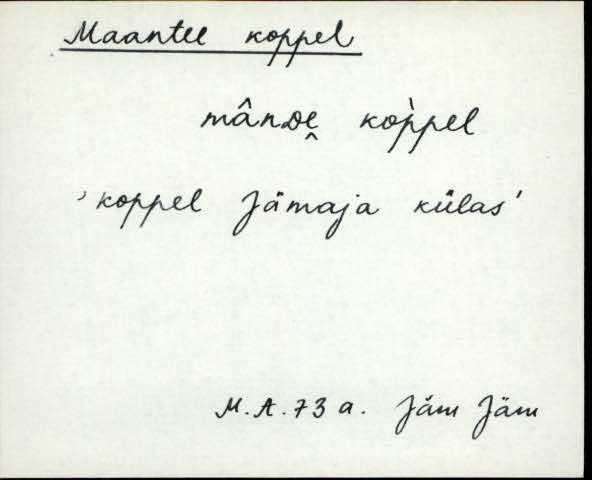 Maantee koppel
mânᴅe̬ kop̀pel
'koppel Jämaja külas'
M.A. 73 a. Jäm Jäm